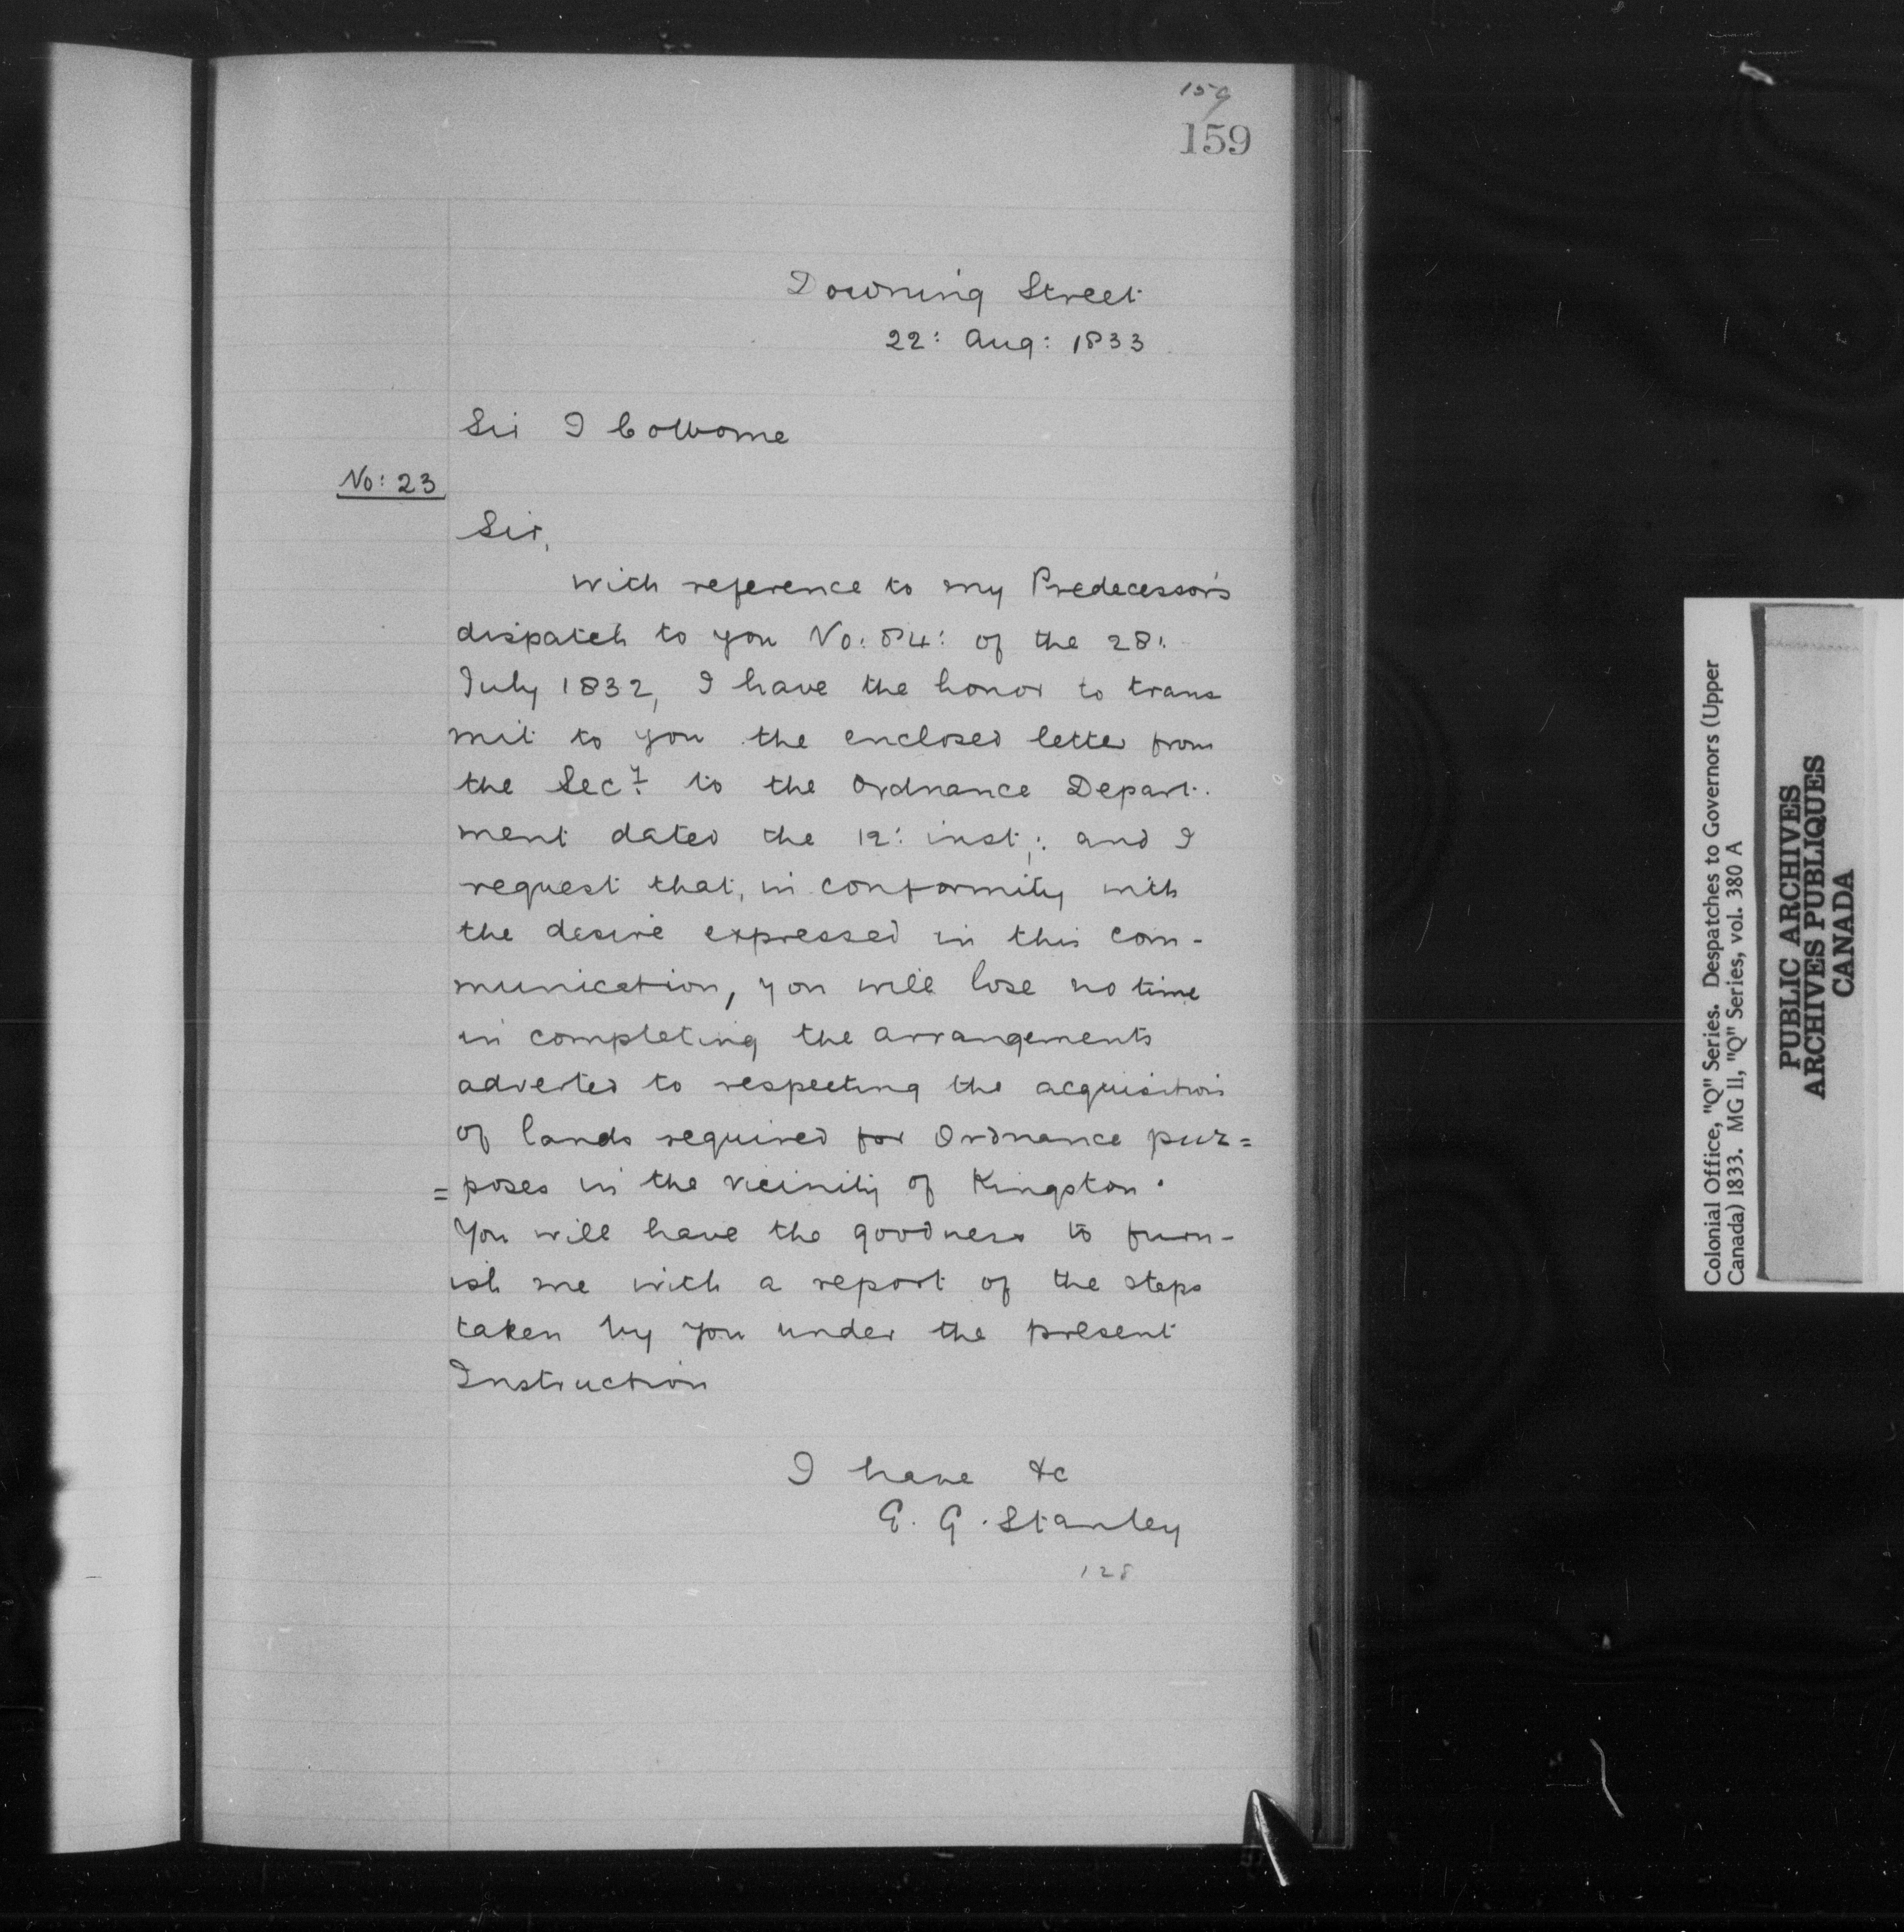 159
159
Downing Street
22: Aug: 1833
Sir J Colborne
No: 23
Sir,
With reference to my Predecessor's
dispatch to you No: 84: of the 28:
July 1832, I have the honor to trans
mit to you the enclosed letter from
the Secy. to the Ordnance Depart.
ment dated the 12: inst,: and I
request that, in conformity with
the desire expressed in this com-
munication, you will lose no time
in completing the arrangements
adverted to respecting the acquisition
of lands required for Ordnance pur=
=poses in the vicinity of Kingston.
You will have the goodness to furn-
ish me with a report of the steps
taken by you under the present
Instruction
I have &c
E. G. Stanley
128
Colonial Office, "Q" Series. Despatches to Governors (Upper
Canada) 1833. MG 11, "Q" Series, vol. 380 A
PUBLIC ARCHIVES
ARCHIVES PUBLIQUES
CANADA